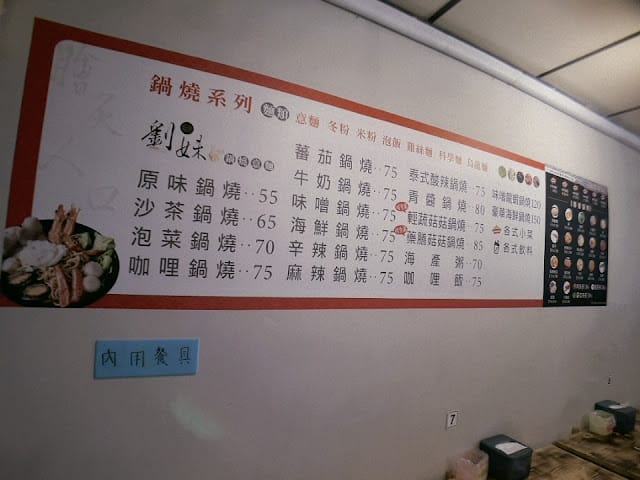 鍋燒系列 麵類 意麵 冬粉 米粉 泡飯 雞絲麵 科學麵 烏龍麵
劉妹 鍋燒意麵
原味鍋燒··55
沙茶鍋燒··65
泡菜鍋燒··70
咖哩鍋燒··75
蕃茄鍋燒··75
牛奶鍋燒··75
味噌鍋燒··75
海鮮鍋燒··75
辛辣鍋燒··75
麻辣鍋燒··75
泰式酸辣鍋燒··75
青醬鍋燒··80
輕蔬菇菇鍋燒··75
藥膳菇菇鍋燒··85
海產粥··70
咖哩飯··75
味噌龍蝦鍋燒120
豪華海鮮鍋燒150
各式小菜
各式飲料
內用餐具
7